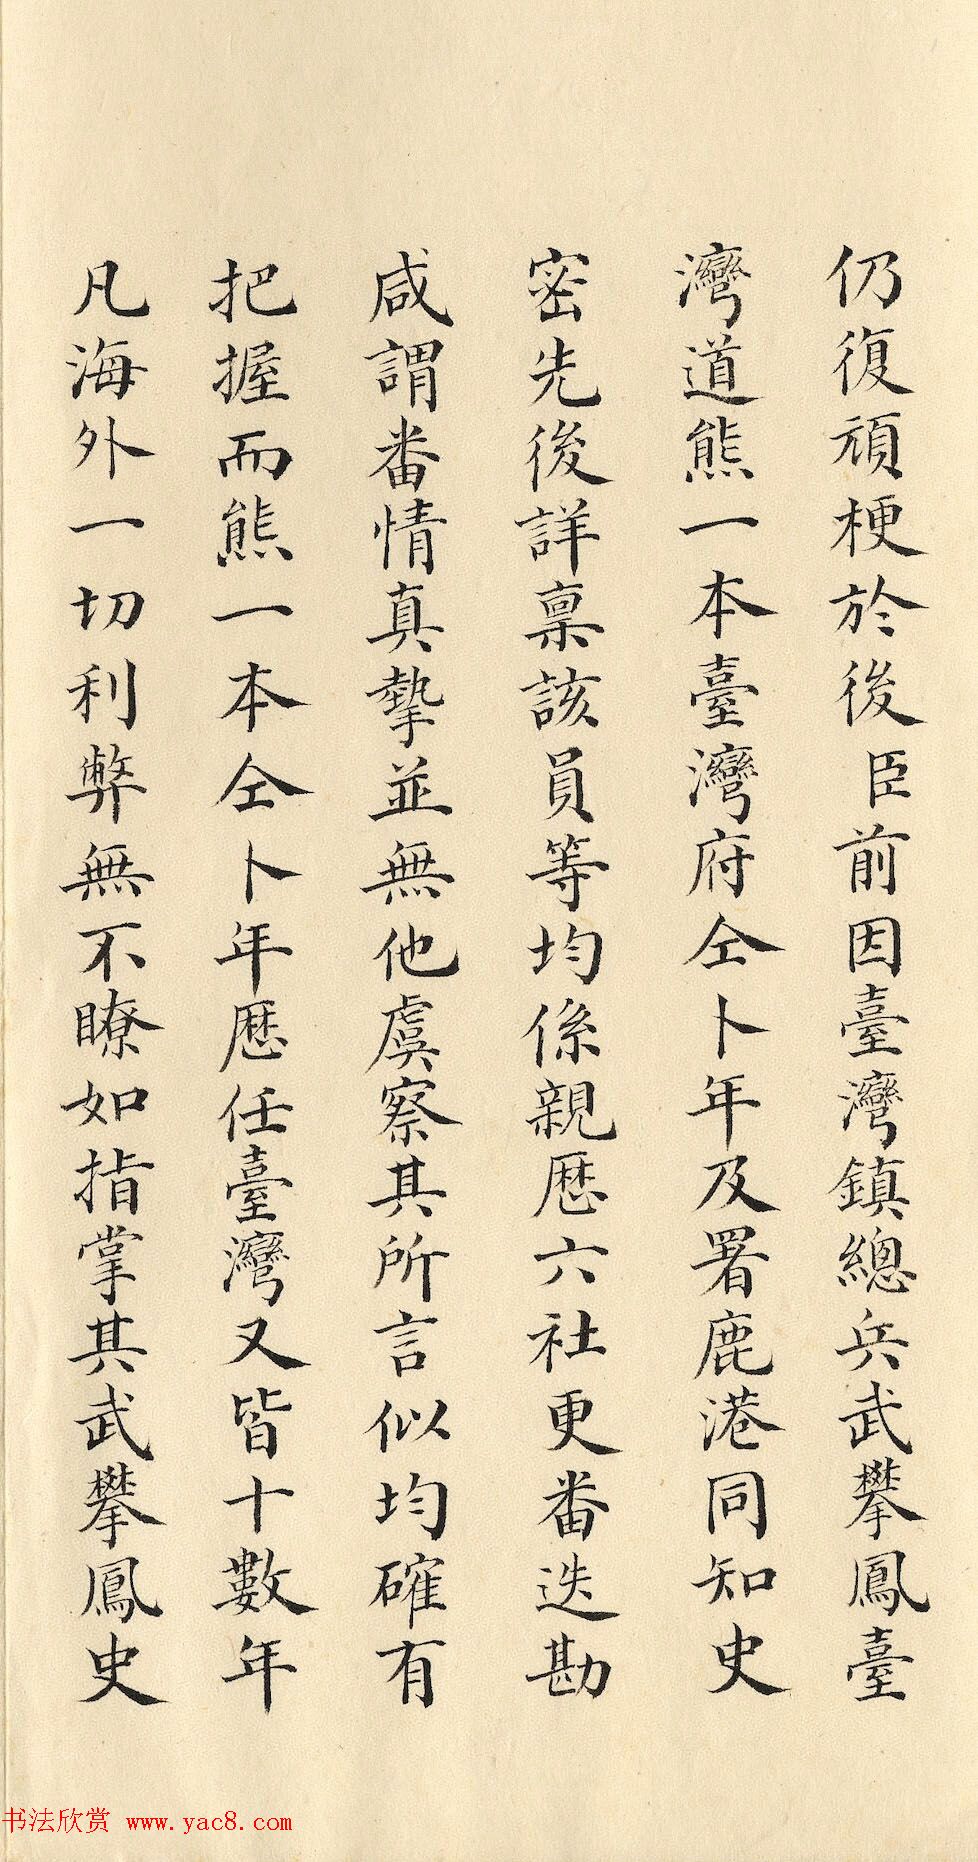 仍復頑梗於後臣前因臺灣鎮總兵武攀鳳臺
灣道熊一本臺灣府仝卜年及署鹿港同知史
密先後詳稟該員等均係親厯六社更番迭勘
咸謂番情真摯並無他虞察其所言似均確有
把握而熊一本仝卜年厯任臺灣又皆十數年
凡海外一切利弊無不瞭如指掌其武攀鳳史
书法欣赏 www.yac8.com